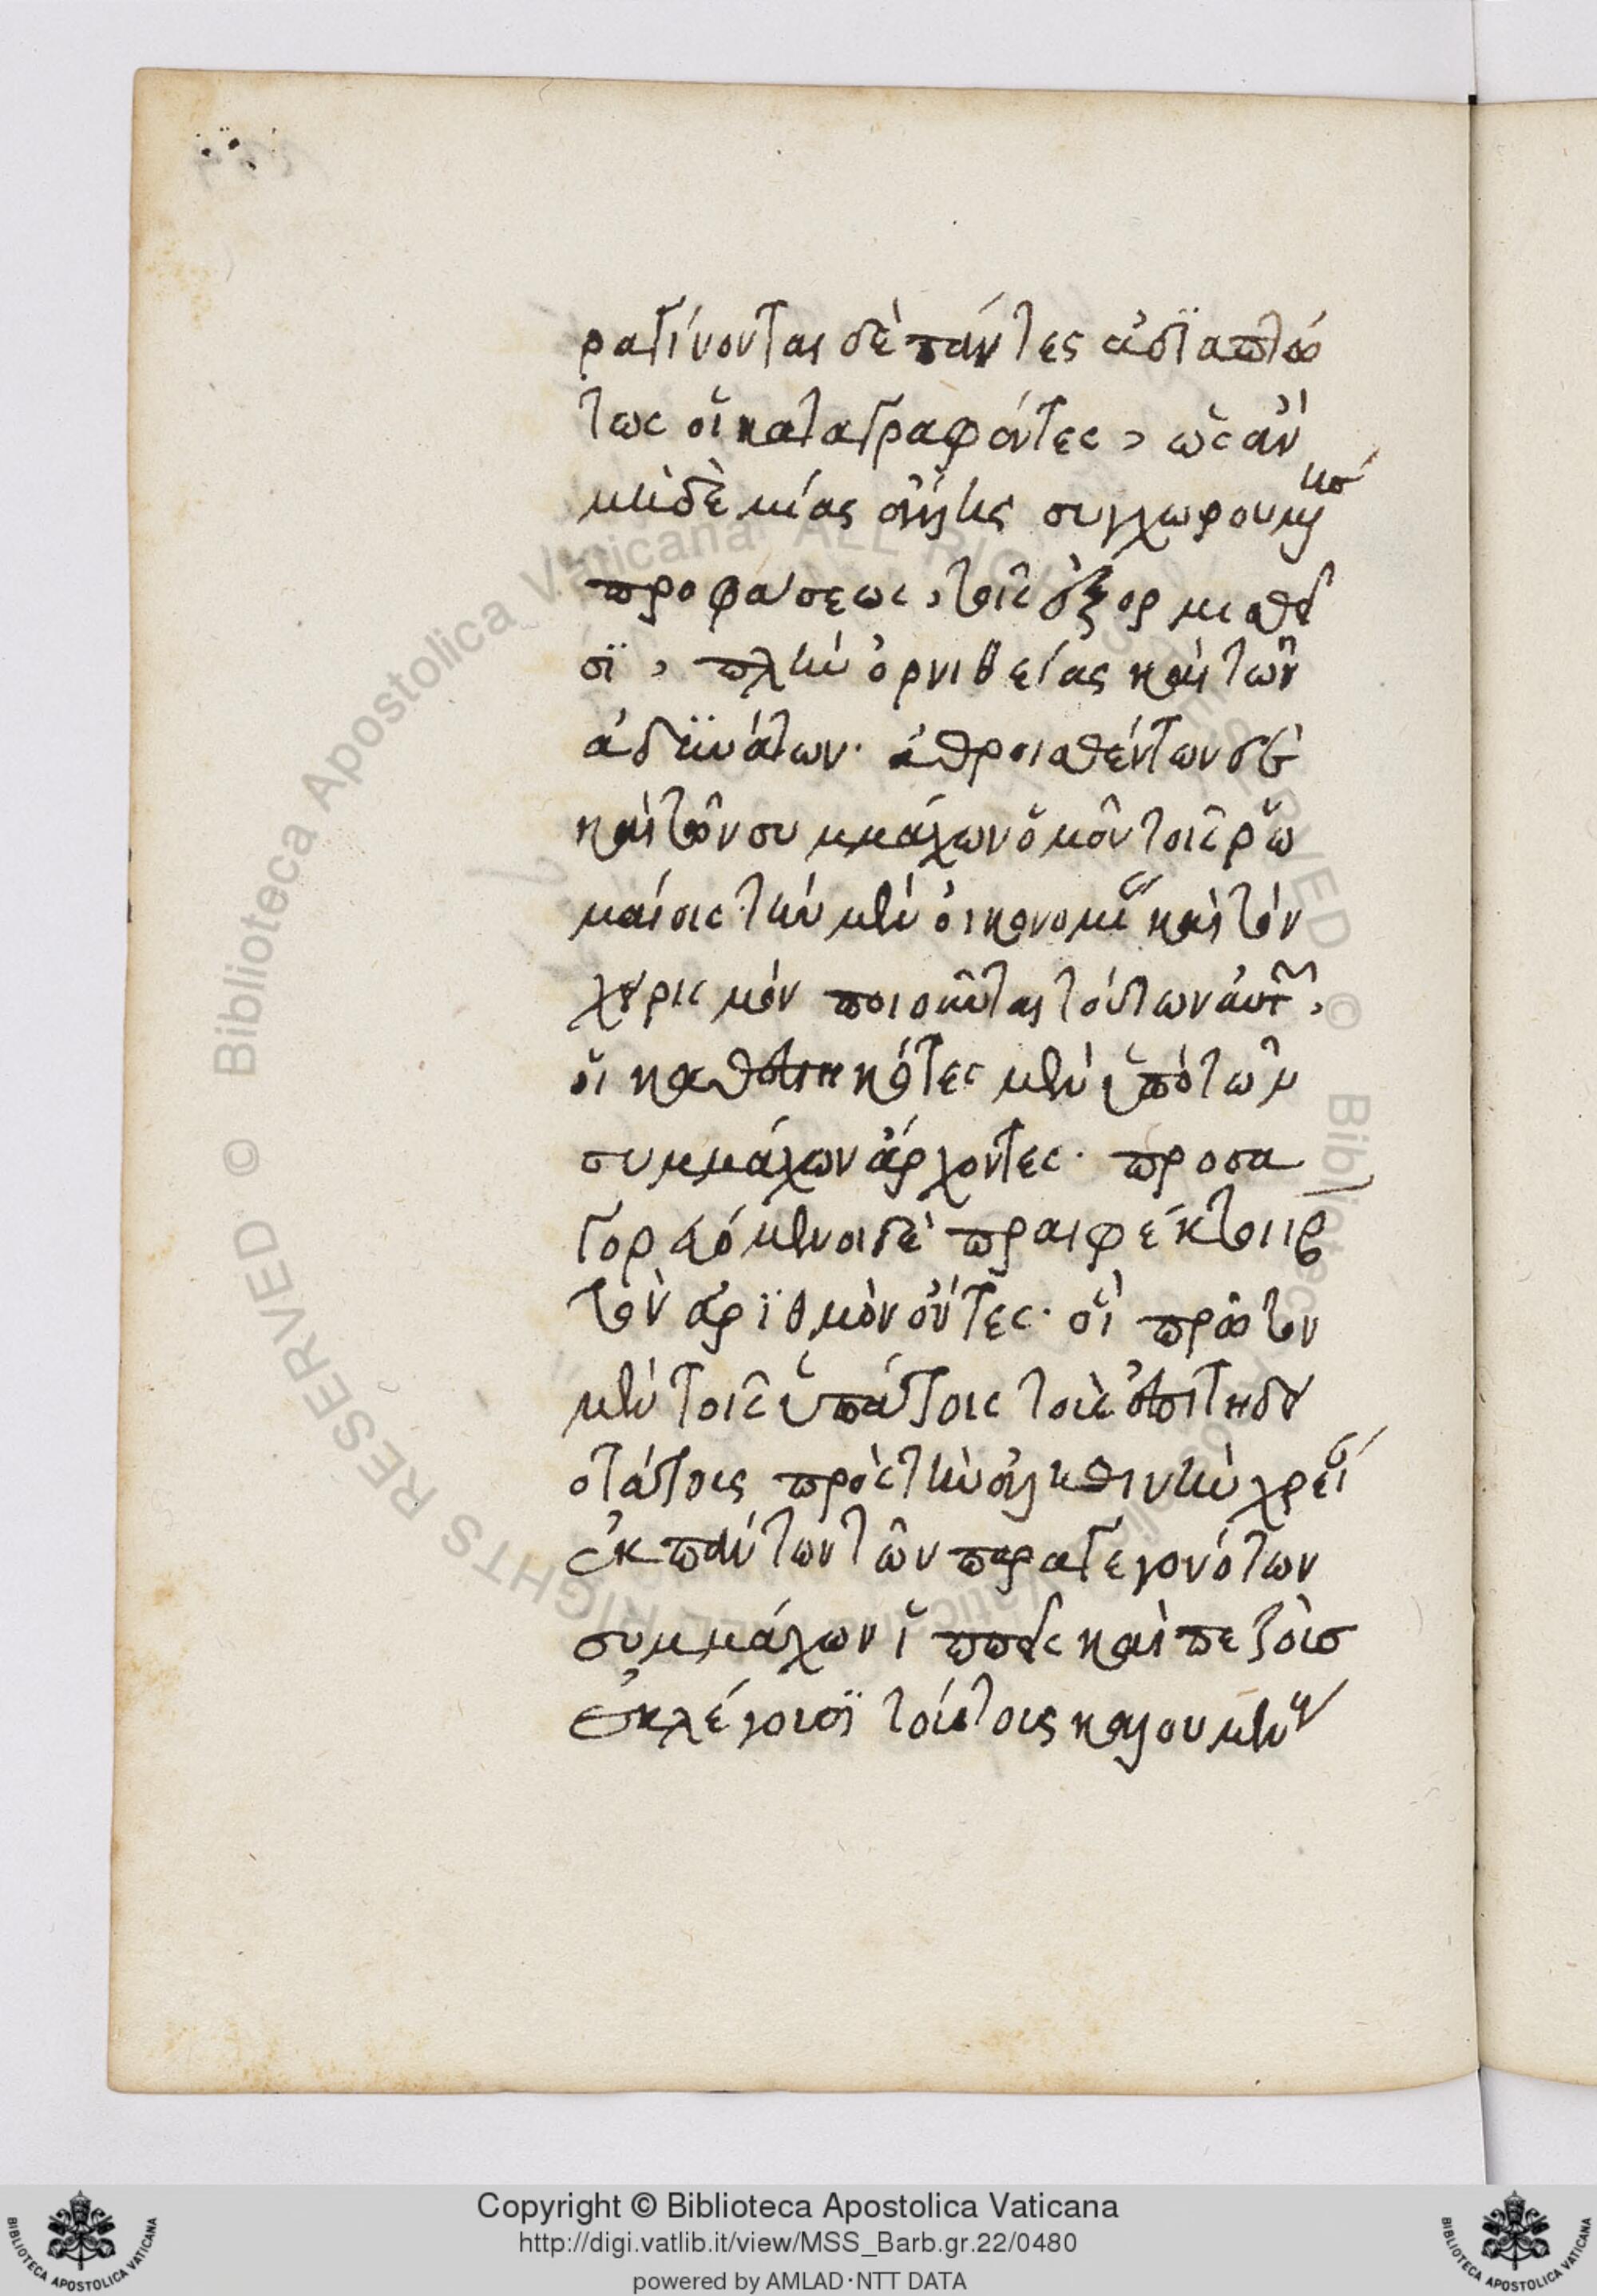 ραγίνονται δὲ πάντες ἀδϊαπτώ
τως οἱ καταγραφόντες, ὡς ἂν
μηδὲ μίας ἄλλης συγχωρουμένης
προφάσεως, τοῖς ἐξορκισθεῖ
σϊ, πλὴν ὀρνιθείας καὶ τῶν
ἀδϋνάτων· ἀθροισθέντων δὲ
καὶ τῶν συμμάχων ὁμοῦ τοῖς ῥω
μαίοις τὴν μὲν οἰκονομίαν καὶ τὸν
χειρισμὸν ποιοῦνται τούτων αὐτῶν,
οἱ καθεστηκότες μὲν ὑπὸ τῶν
συμμάχων ἄρχοντες· προσα
γορευόμενοι δὲ πραιφέκτοι ιβ
τὸν ἀρϊθμὸν ὄντες· οἳ πρῶτον
μὲν τοῖς ὑπάτοις τοὺς ἐπιτηδει
οτάτους πρὸς τὴν ἀληθινὴν χρείαν
ἐκ πάντων τῶν παραγεγονότων
συμμάχων ἱππεῖς καὶ πεζοὺσ
ἐκλέγουσϊ τοὺς τους καλουμένους
Copyright © Biblioteca Apostolica Vaticana
http://digi.vatlib.it/view/MSS_Barb.gr.22/0480
powered by AMLAD·NTT DATA